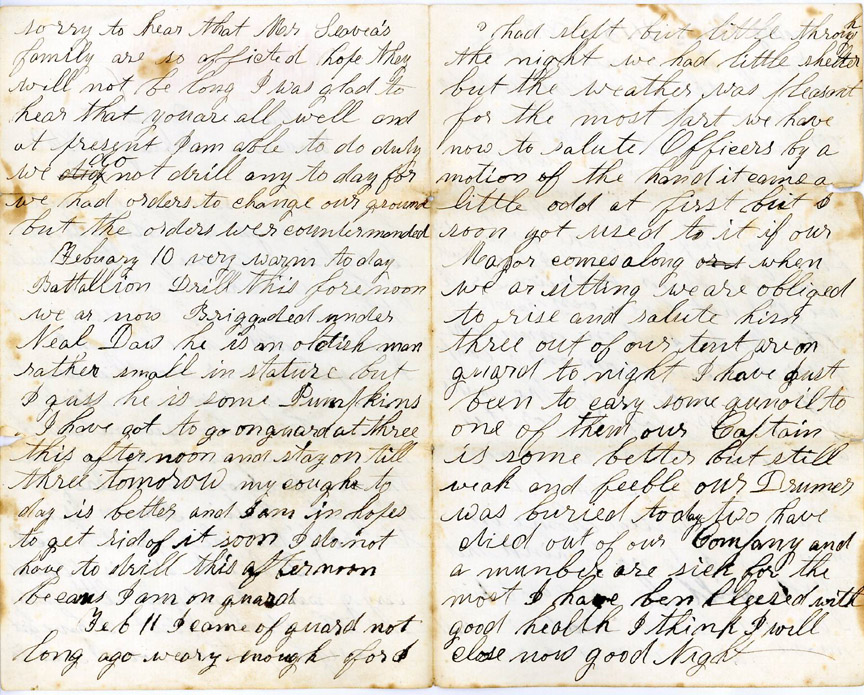 sorry to hear that Mr Leavea's
family are so afficted hope they
will not be long I was glad to
hear that you are all well and
at present I am able to do duty
we do not drill any to day for
we had orders to change our ground
but the orders wer countermanded
Febuary 10 very warm to day
Battallion Drill this forenoon
we ar now Briggaded under
Neal Dow he is an oldish man
rather small in stature but
I guss he is some Pumpkins
I have got to go on guard at three
this afternoon and stay on till
three tomorow my cough to
day is better and I am in hopes
to get rid of it soon I do not
have to drill this afternoon
becaus I am on guard
Feb 11 I came of guard not
long ago weary enough for I
had slept but little through
the night we had little shelter
but the weather was pleasant
for the most part we have
now to salute Officers by a
motion of the hand it came a
little odd at first but I
soon got used to it if our
Major comes along when
we ar sitting we are obliged
to rise and salute him
three out of our tent are on
guard to night I have just
been to cary some gunoil to
one of them our Captain
is some better but still
weak and feeble our Drumer
was buried today two have
died out of our Company and
a munber are sick for the
most I have ben blessed with
good health I think I will
close now good Night